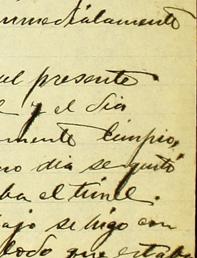 inmediatamente
al presente
y el dia
mente limpio,
mo dia se quitó
ba el túnel.
ajo se hizo con
lodo que estaba